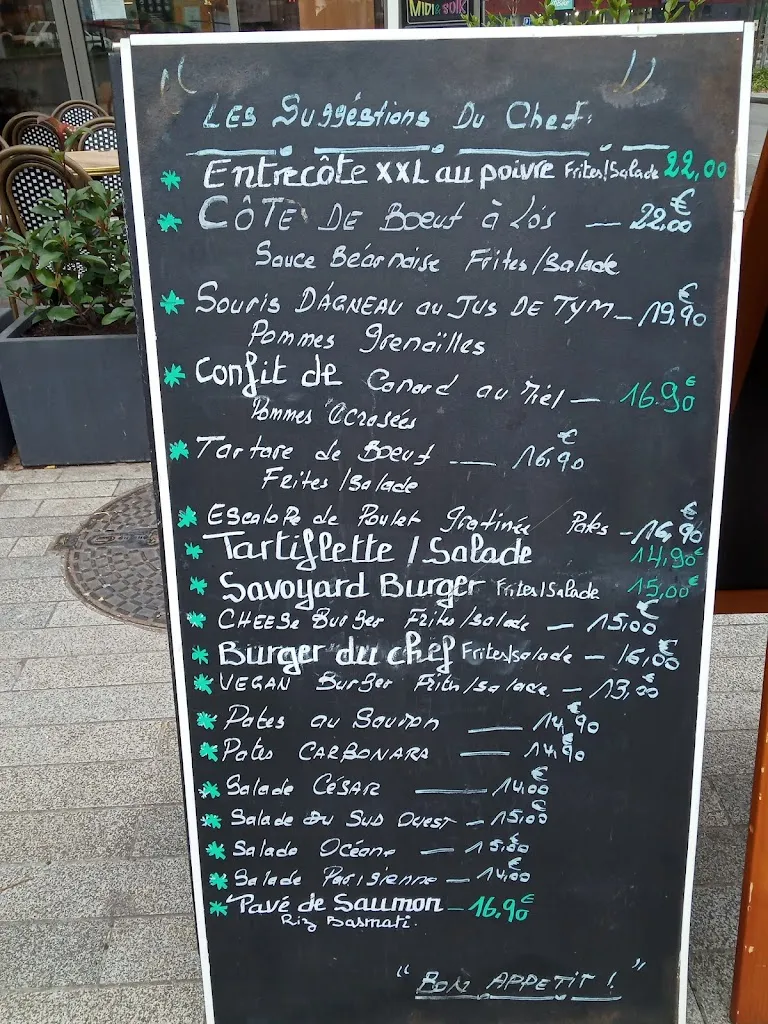 MIDI & SOIR
" LES SuggéStions Du Chef: "
* Entrecôte XXL au poivre Frites/Salade 22,00
* CÔTE DE Boeuf à L'os — 22,00 €
Sauce Béarnaise Frites/Salade
* Souris D'AGNEAU au Jus DE TYM — 19,90 €
Pommes grenailles
* Confit de Canard au Miel — 16.90 €
Pommes écrasées
* Tartare de Boeuf — 16,90 €
Frites/Salade
* Escalope de Poulet gratinée Pates — 16,90 €
* Tartiflette / Salade 14,90 €
* Savoyard Burger Frites/Salade 15,00 €
* CHEESE Burger Frites/Salade — 15,00 €
* Burger du chef Frites/Salade — 16,00 €
* VEGAN Burger Frites/Salade — 13,00 €
* Pates au Saumon — 14,90 €
* Pates CARBONARA — 14,90 €
* Salade CÉSAR — 14,00 €
* Salade du SUD OUEST — 15,00 €
* Salade Océane — 15,80 €
* Salade Parisienne — 14,00 €
* Pavé de Saumon — 16,90 €
Riz Basmati.
" BON APPETIT ! "